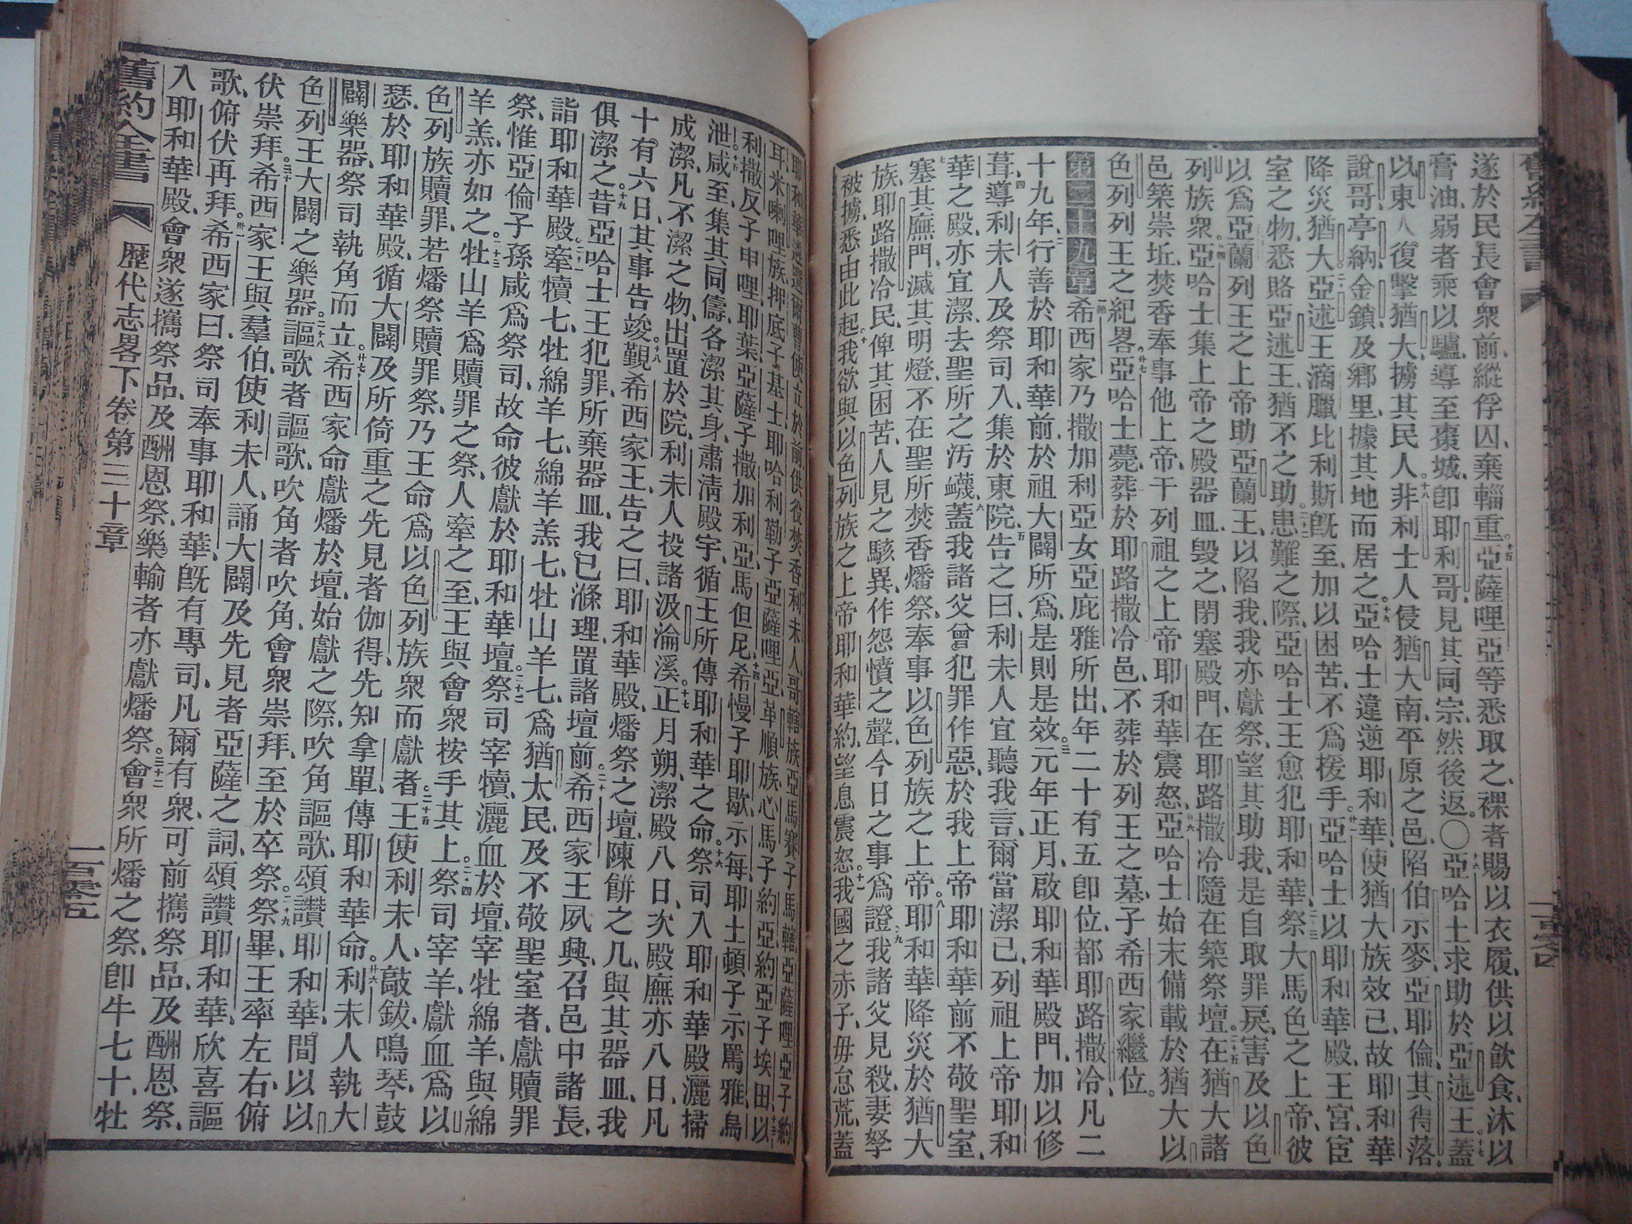 遂於民長會眾前縱俘囚棄輜重亞薩哩亞等悉取之裸者賜以衣履供以飲食沐以
膏油弱者乘以驢導至棗城卽耶利哥見其同宗然後返〇亞哈士求助於亞述王蓋
以東人復擊猶大擄其民人非利士人侵猶大南平原之邑陷伯示麥亞耶倫其得落
說哥亭納金鎖及鄉里據其地而居之亞哈士違逆耶和華使猶大族效己故耶和華
降災猶大亞述王滴臘比利斯旣至加以困苦不爲援手亞哈士以耶和華殿王宮宦
室之物悉賂亞述王猶不之助患難之際亞哈士王愈犯耶和華祭大馬色之上帝彼
以爲亞蘭列王之上帝助亞蘭王以陷我我亦獻祭望其助我是自取罪戾害及以色
列族眾亞哈士集上帝之殿器皿毀之閉塞殿門在耶路撒冷隨在築祭壇在猶大諸
邑築崇坵焚香奉事他上帝干列祖之上帝耶和華震怒亞哈士始末備載於猶大以
色列列王之紀畧亞哈士薨葬於耶路撒冷邑不葬於列王之墓子希西家繼位
第二十九章希西家乃撒加利亞女亞庇雅所出年二十有五卽位都耶路撒冷凡二
十九年行善於耶和華前於祖大闢所爲是則是效元年正月啟耶和華殿門加以修
葺導利未人及祭司入集於東院告之曰利未人宜聽我言爾當潔已列祖上帝耶和
華之殿亦宜潔去聖所之污衊蓋我諸父曾犯罪作惡於我上帝耶和華前不敬聖室
塞其廡門滅其明燈不在聖所焚香燔祭奉事以色列族之上帝耶和華降災於猶大
族耶路撒冷民俾其困苦人見之駭異作怨憤之聲今日之事爲證我諸父見殺妻孥
被擄悉由此起我欲與以色列族之上帝耶和華約望息震怒我國之赤子毋怠荒蓋
耶和華遴選爾曹使立於前供役焚香利未人哥轄族亞馬賽子馬轄亞薩哩亞子約
耳米喇哩族押底子基士耶哈利勒子亞薩哩亞革順族心馬子約亞約亞子埃田以
利撒反子申哩耶葉亞薩子撒加利亞馬但尼希慢子耶歇示每耶土頓子示罵雅烏
泄咸至集其同儔各潔其身肅清殿宇循王所傳耶和華之命祭司入耶和華殿灑掃
成潔凡不潔之物出置於院利未人投諸汲淪溪正月朔潔殿八日次殿廡亦八日凡
十有六日其事告竣覲希西家王告之曰耶和華殿燔祭之壇陳餅之几與其器皿我
俱潔之昔亞哈士王犯罪所棄器皿我已滌理置諸壇前希西家王夙興召邑中諸長
詣耶和華殿牽犢七牡綿羊七綿羊羔七牡山羊七爲猶太民及不敬聖室者獻贖罪
祭惟亞倫子孫咸爲祭司故命彼獻於耶和華壇祭司宰犢灑血於壇宰牡綿羊與綿
羊羔亦如之牡山羊爲贖罪之祭人牽之至王與會眾按手其上祭司宰羊獻血爲以
色列族贖罪若燔祭贖罪祭乃王命爲以色列族眾而獻者王使利未人敲鈸鳴琴鼓
瑟於耶和華殿循大闢及所倚重之先見者伽得先知拿單傳耶和華命利未人執大
闢樂器祭司執角而立希西家命獻燔於壇始獻之際吹角謳歌頌讚耶和華間以以
色列王大闢之樂器謳歌者謳歌吹角者吹角會眾崇拜至於卒祭祭畢王率左右俯
伏崇拜希西家王與羣伯使利未人誦大闢及先見者亞薩之詞頌讚耶和華欣喜謳
歌俯伏再拜希西家曰祭司奉事耶和華旣有專司凡爾有眾可前攜祭品及酬恩祭
入耶和華殿會眾遂攜祭品及酬恩祭樂輸者亦獻燔祭會眾所燔之祭卽牛七十牡
舊約全書 歷代志畧下卷第三十章 一百零五